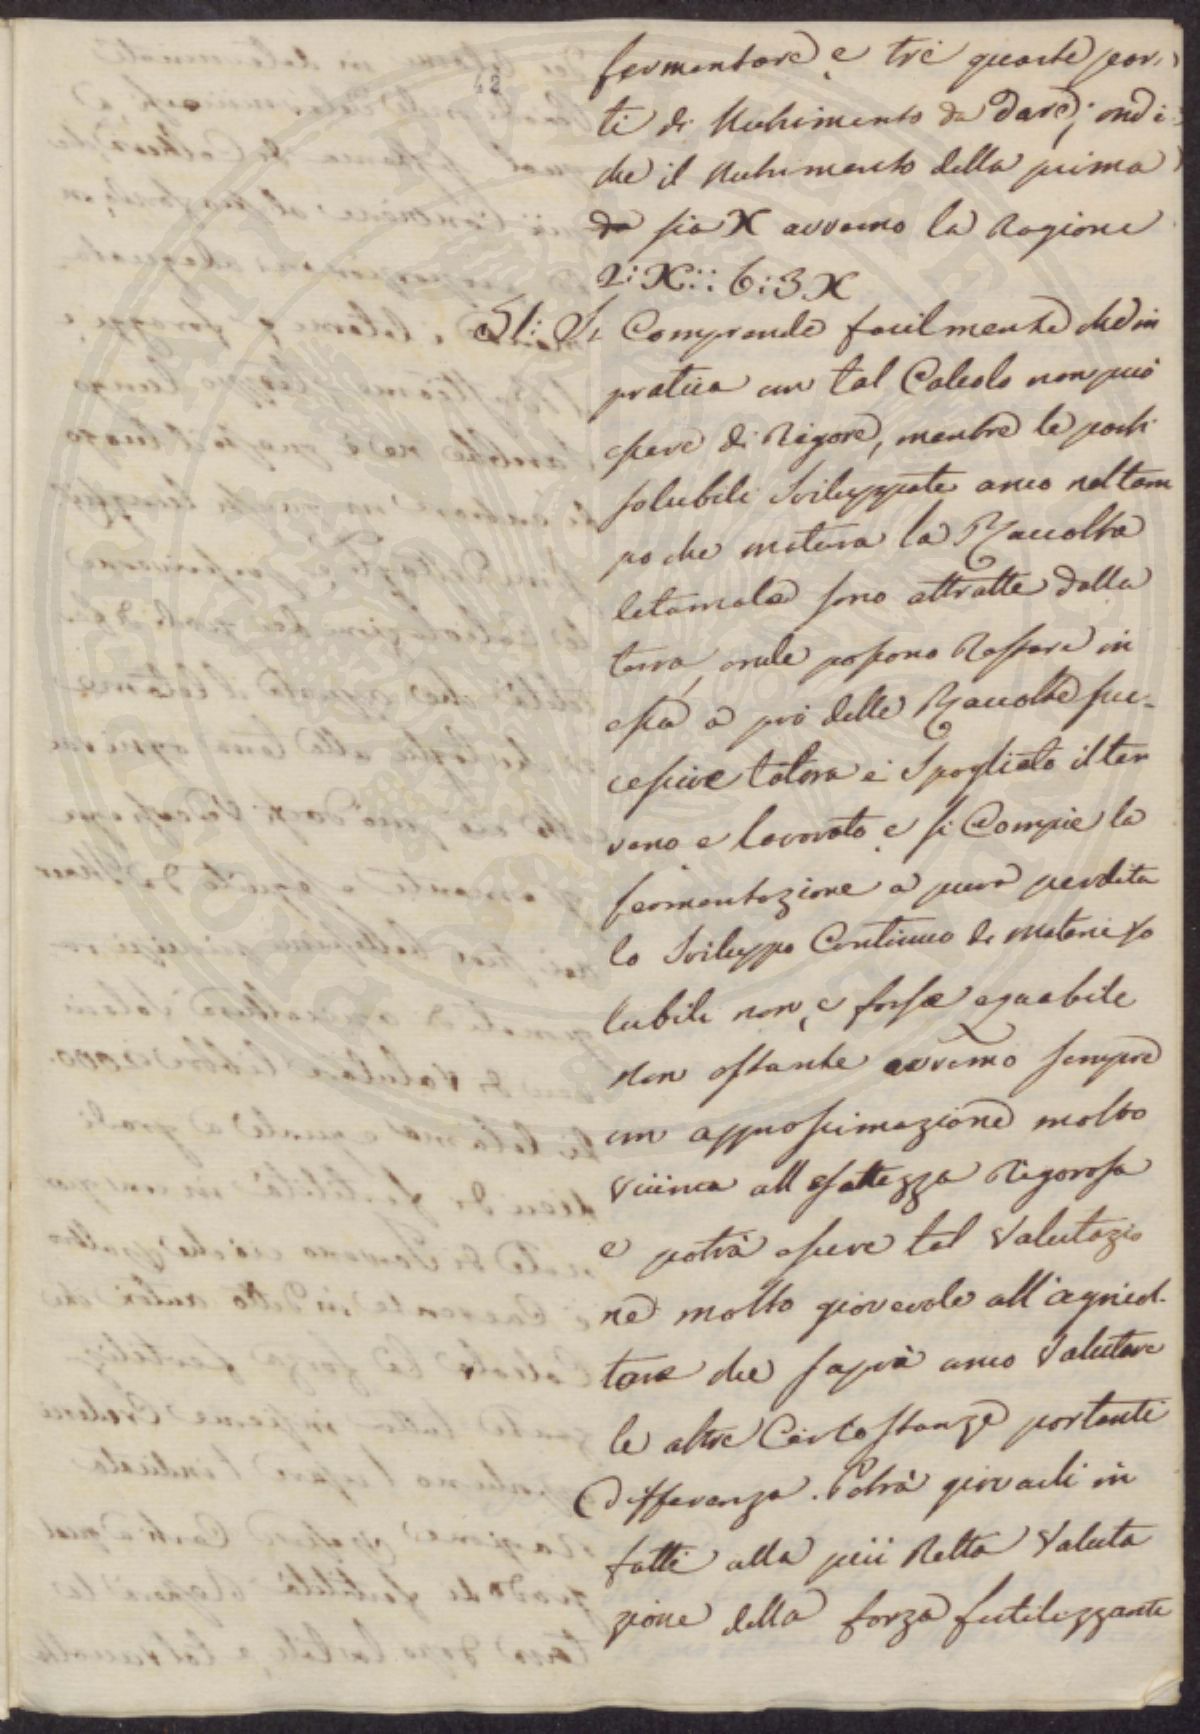 42
fermentare e tre quarte par-
ti di Nutrimento da Dare; ond è
che il Nutrimento della prima
da sia X avremo la Ragione
2:X::6:3X
51: Si Comprende facilmente che in
pratica un tal Calcolo non può
essere di Rigore, mentre le parti
solubili Sviluppate anco nel tem
po che matura la Raccolta
letamata sono attratte dalla
terra, onde possono Restare in
essa a prò delle Raccolte suc-
cessive talora è Spogliato il ter
reno e lavorato e si Compie la
fermentazione a pura perdita
lo Sviluppo Continuo di materie so
lubili non è forse equabile
Non ostante avremo sempre
un approssimazione molto
vicina all esattezza Rigorosa
e potrà essere tal Valutazio
ne molto giovevole all'agricol-
tore che saprà anco Valutare
le altre Circostanze portanti
Differenza. Potrà giovarli in
fatti alla più Retta Valuta
zione della forza fertilizzante